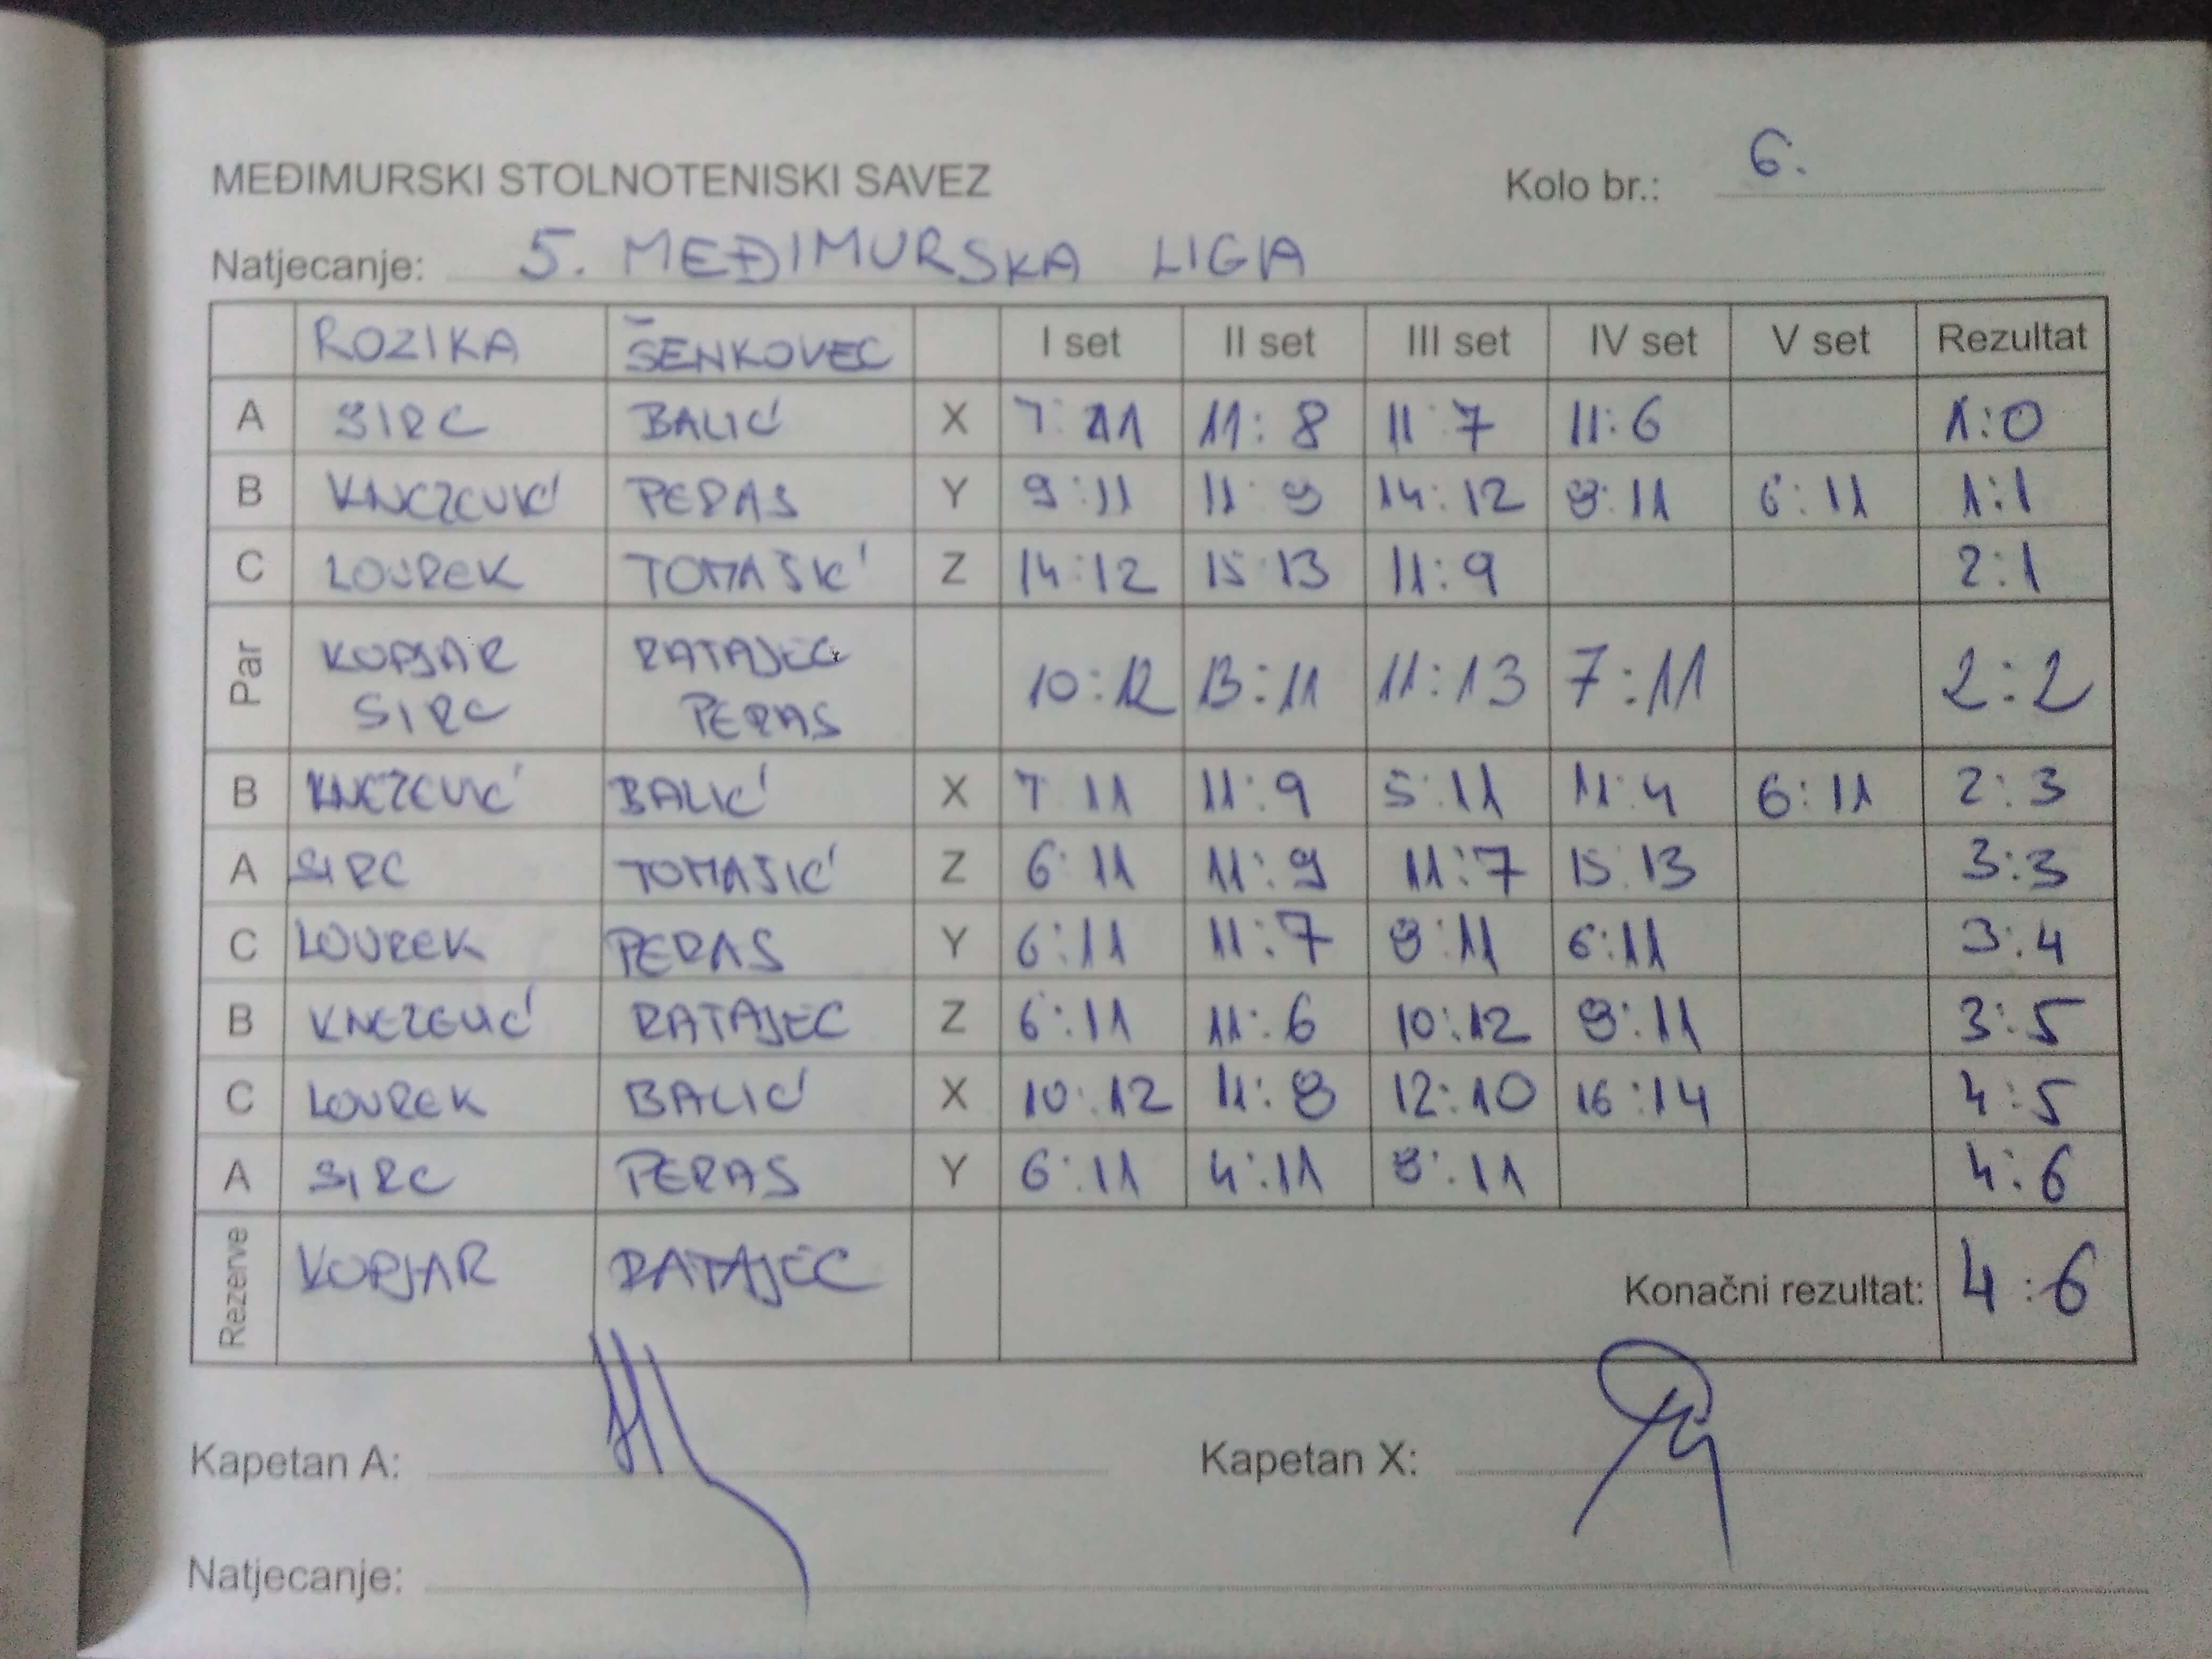 MEĐIMURSKI STOLNOTENISKI SAVEZ Kolo br.: 6.
Natjecanje: 5. MEĐIMURSKA LIGA
ROZIKA ŠENKOVEC I set II set III set IV set V set Rezultat
A SIRC BALIĆ X 7:11 11:8 11:7 11:6 1:0
B KNEZEVIĆ PERAS Y 9:11 11:9 14:12 8:11 6:11 1:1
C LOVREK TOMAŠIĆ Z 14:12 15:13 11:9 2:1
Par KOPJAR SIRC RATAJEC PERAS 10:12 13:11 11:13 7:11 2:2
B KNEZEVIĆ BALIĆ X 7:11 11:9 5:11 11:4 6:11 2:3
A SIRC TOMASIĆ Z 6:11 11:9 11:7 15:13 3:3
C LOVREK PERAS Y 6:11 11:7 8:11 6:11 3:4
B KNEZEVIĆ RATAJEC Z 6:11 11:6 10:12 8:11 3:5
C LOVREK BALIĆ X 10:12 11:8 12:10 16:14 4:5
A SIRC PERAS Y 6:11 4:11 8:11 4:6
Rezerve KOPJAR RATAJEC Konačni rezultat: 4:6
Kapetan A: Kapetan X:
Natjecanje: